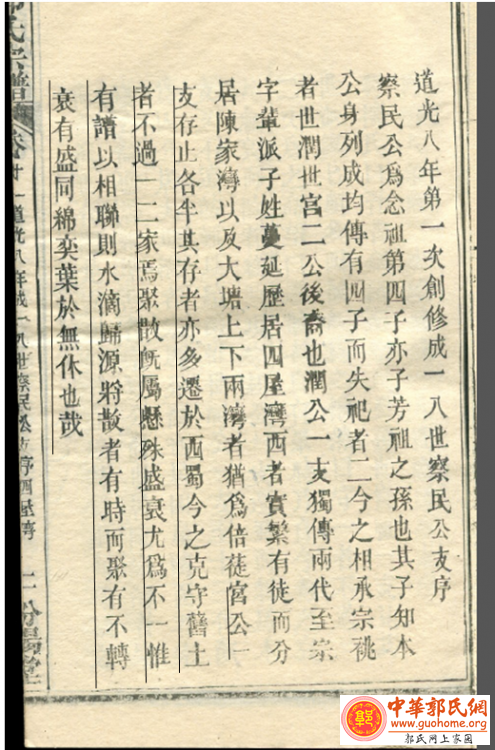 道光八年第一次創修成一八世察民公支序
察民公爲念祖第四子亦子芳祖之孫也其子知本
公身列成均傳有四子而失祀者二今之相承宗祧
者世潤世宮二公後裔也潤公一支獨傳兩代至宗
字輩派子姓蔓延歷居四屋灣西者實繁有徒而分
居陳家灣以及大塘上下兩灣者猶爲倍蓰宮公一
支存止各半其存者亦多遷於西蜀今之克守舊土
者不過一二家焉聚散既屬懸殊盛衰尤爲不一惟
有譜以相聯則水滴歸源將散者有時而聚有不轉
衰有盛同綿奕葉於無休也哉
氏宗譜
卷廿一道光八年成一八世察民公支序四屋灣
二 汾陽堂
中華郭氏網
www.guohome.org
郭氏网上家園